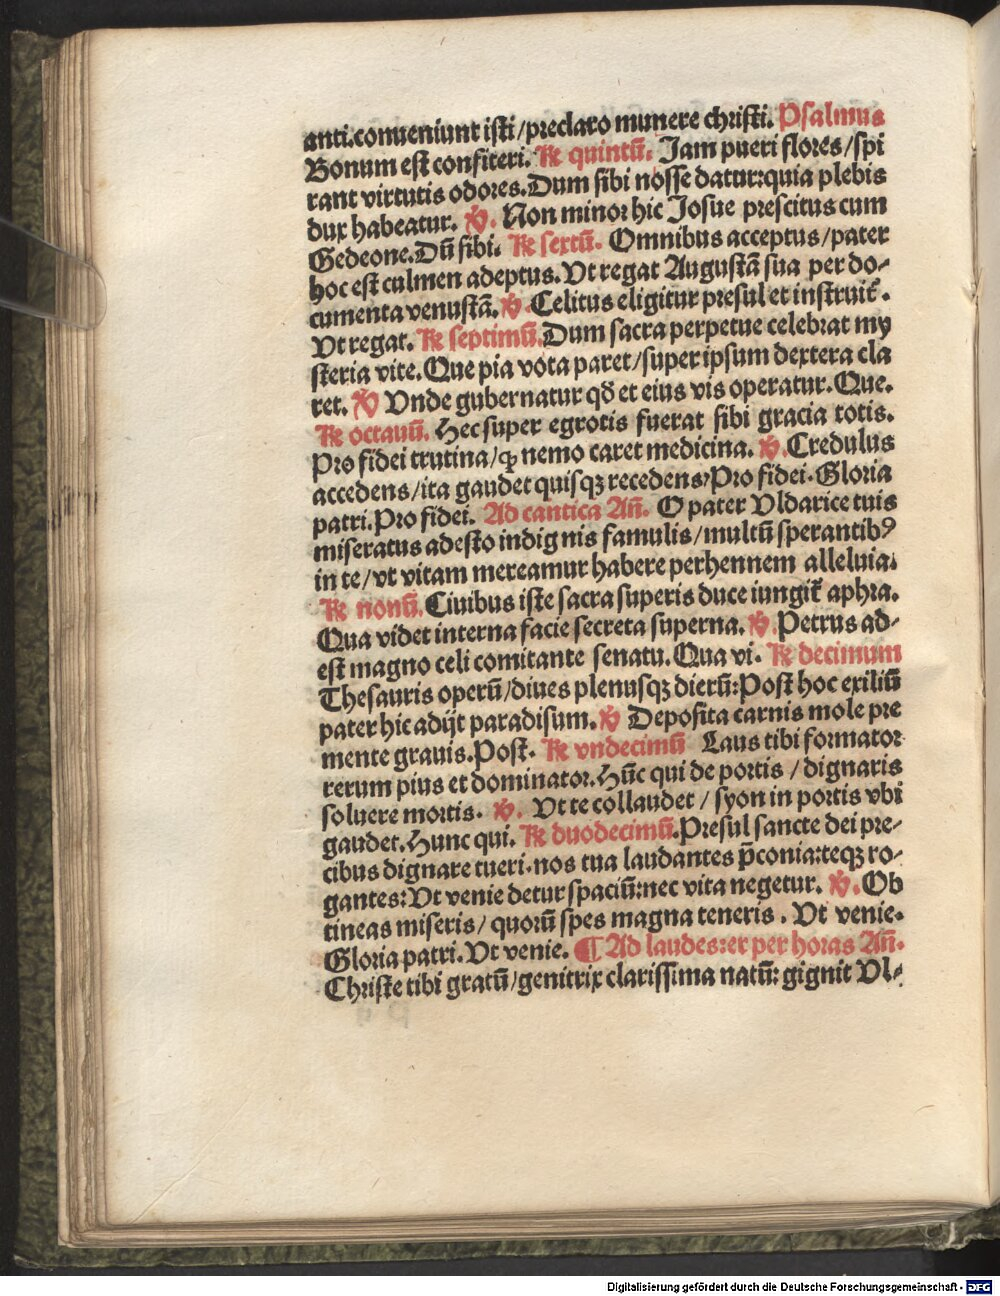 anti.conueniunt isti/preclaro munere christi. Psalmus
Bonum est confiteri. ℟ quintū. Jam pueri flores/spi
rant virtutis odores. Dum sibi nosse datur:quia plebis
dux habeatur. ℣. Non minor hic Josue prescitus cum
Gedeone. Dū sibi. ℟ sextū. Omnibus acceptus/pater
hoc est culmen adeptus. Vt regat Augustā sua per do-
cumenta venustā. ℣. Celitus eligitur presul et instruit̄.
Vt regat. ℟ septimū. Dum sacra perpetue celebrat my
steria vite. Que pia vota paret/super ipsum dextera cla
ret. ℣ Vnde gubernatur qd̄ et eius vis operatur. Que.
℟ octauū. Hec super egrotis fuerat sibi gracia totis.
Pro fidei trutina/ꝙ nemo caret medicina. ℣. Credulus
accedens/ita gaudet quisqꝫ recedens/Pro fidei. Gloria
patri. Pro fidei. Ad cantica An̄. O pater Vldarice tuis
miseratus adesto indignis famulis/multū sperantibꝰ
in te/vt vitam mereamur habere perhennem alleluia.
℟ nonū. Ciuibus iste sacra superis duce iungit̄ aphra.
Qua videt interna facie secreta superna. ℣. Petrus ad-
est magno celi comitante senatu. Qua vi. ℟ decimum
Thesauris operū/diues plenusqꝫ dierū: Post hoc exiliū
pater hic adijt paradisum. ℣ Deposita carnis mole pre
mente grauis. Post. ℟ vndecimū Laus tibi formator
rerum pius et dominator. Hūc qui de portis / dignaris
soluere mortis. ℣. Vt te collaudet / syon in portis vbi
gaudet. Hunc qui. ℟ duodecimū. Presul sancte dei pre-
cibus dignare tueri. nos tua laudantes p̄conia:teqꝫ ro-
gantes: Vt venie detur spaciū:nec vita negetur. ℣. Ob
tineas miseris/ quorū spes magna teneris. Vt venie.
Gloria patri. Vt venie. ¶ Ad laudes:et per horas An̄.
Christe tibi gratū/genitrix clarissima natū: gignit Vl-
Digitalisierung gefördert durch die Deutsche Forschungsgemeinschaft - DFG